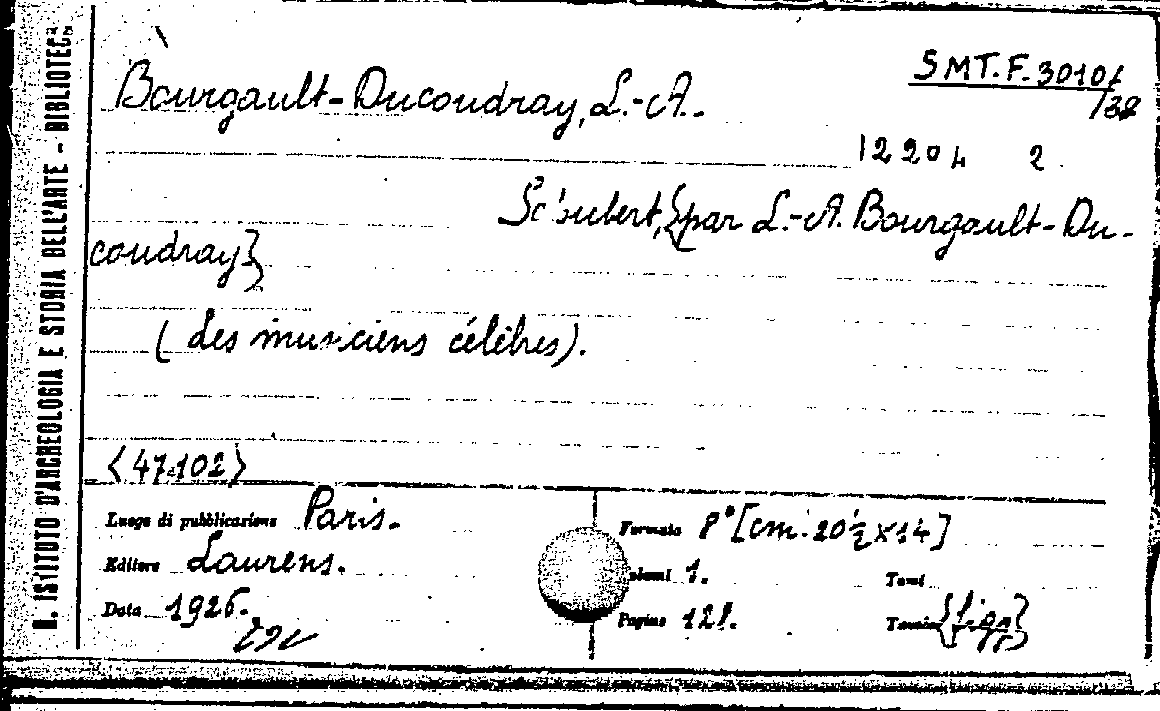 R. ISTITUTO D'ARCHEOLOGIA E STORIA DELL'ARTE - BIBLIOTECA
Bourgault-Ducoudray, L.-A.
SMT.F.3010/
/38
12204 2
Schubert, {par L.-A. Bourgault-Du-
coudray}
(des musiciens célèbres).
<47102>
Luogo di pubblicazione Paris.
Formato 8° [cm. 20½x14]
Editore Laurens.
Volumi 1.
Tomi
Data 1926.
Pagine 121.
Tavole {figg}